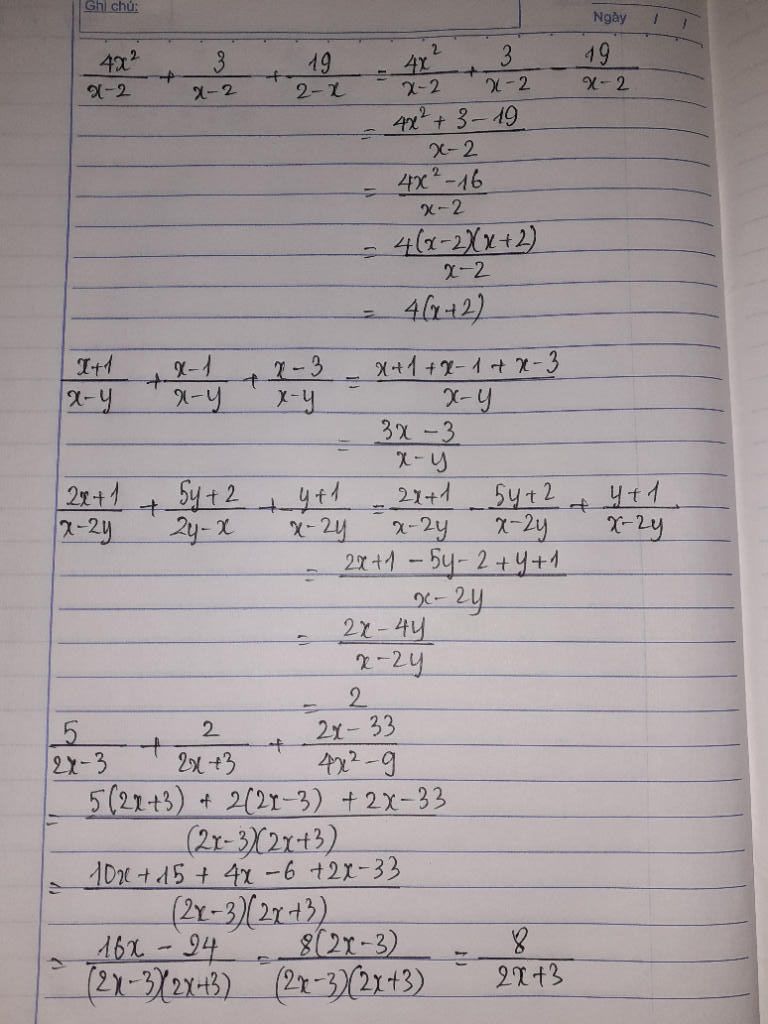 Ghi chú:
Ngày / /
\frac{4x^2}{x-2} + \frac{3}{x-2} + \frac{19}{2-x} = \frac{4x^2}{x-2} + \frac{3}{x-2} - \frac{19}{x-2}
= \frac{4x^2+3-19}{x-2}
= \frac{4x^2-16}{x-2}
= \frac{4(x-2)(x+2)}{x-2}
= 4(x+2)
\frac{x+1}{x-y} + \frac{x-1}{x-y} + \frac{x-3}{x-y} = \frac{x+1+x-1+x-3}{x-y}
= \frac{3x-3}{x-y}
\frac{2x+1}{x-2y} + \frac{5y+2}{2y-x} + \frac{y+1}{x-2y} = \frac{2x+1}{x-2y} - \frac{5y+2}{x-2y} + \frac{y+1}{x-2y}
= \frac{2x+1-5y-2+y+1}{x-2y}
= \frac{2x-4y}{x-2y}
= 2
\frac{5}{2x-3} + \frac{2}{2x+3} + \frac{2x-33}{4x^2-9}
= \frac{5(2x+3)+2(2x-3)+2x-33}{(2x-3)(2x+3)}
= \frac{10x+15+4x-6+2x-33}{(2x-3)(2x+3)}
= \frac{16x-24}{(2x-3)(2x+3)} = \frac{8(2x-3)}{(2x-3)(2x+3)} = \frac{8}{2x+3}